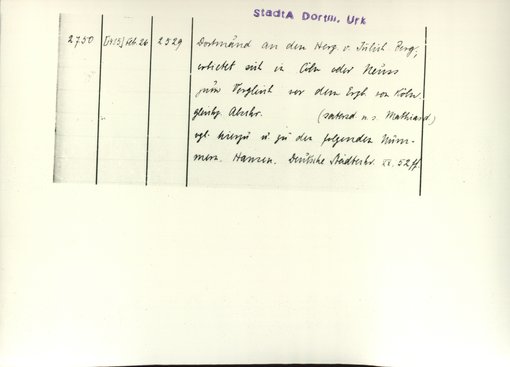 StadtA Dortm. Urk
2750 [1415] Febr. 26 2529 Dortmund an den Herzg. v. Jülich Berg,
erbietet sich in Cöln oder Neuss
zum Vergleich vor dem Erzb. von Köln.
gleichz. Abschr. (saterd n. s. Mathiasd)
vgl. hierzu u. zu den folgenden Num-
mern. Hansen. Deutsche Städtechr. XX. 52 ff